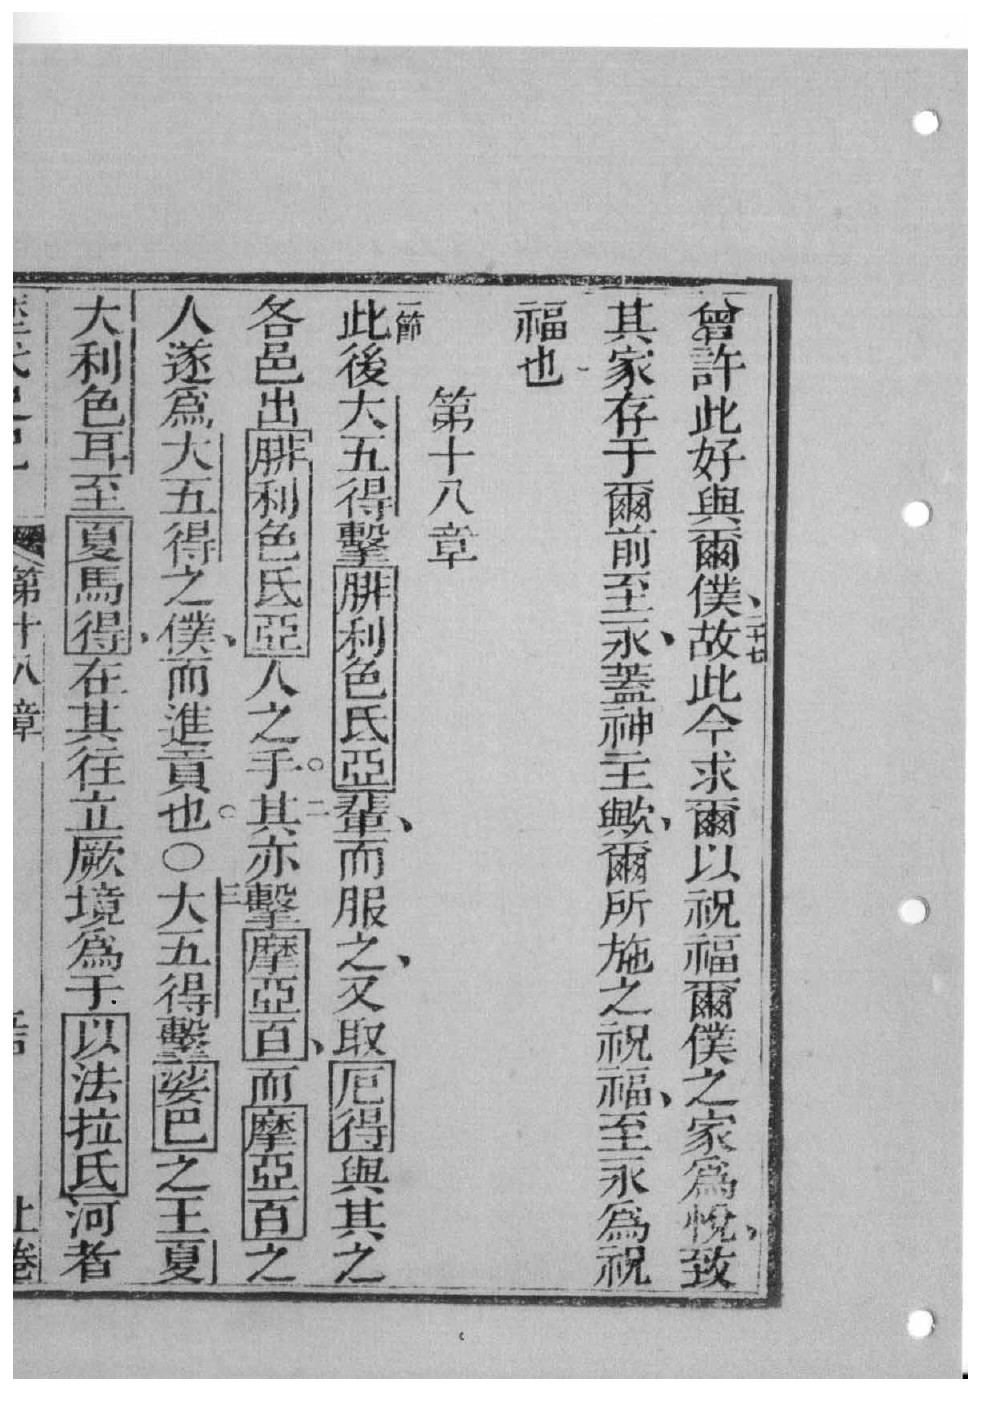 曾許此好與爾僕、二十七故此今求爾以祝福爾僕之家爲悅、致
其家存于爾前至永、蓋神主歟、爾所施之祝福、至永爲祝
福也
第十八章
一節此後大五得擊腓利色氏亞輩、而服之、又取厄得與其之
各邑出腓利色氏亞人之手。二其亦擊摩亞百、而摩亞百之
人遂爲大五得之僕、而進貢也。○三大五得擊娑巴之王夏
大利色耳至夏馬得、在其往立厥境爲于以法拉氏河者
第十八章 上卷